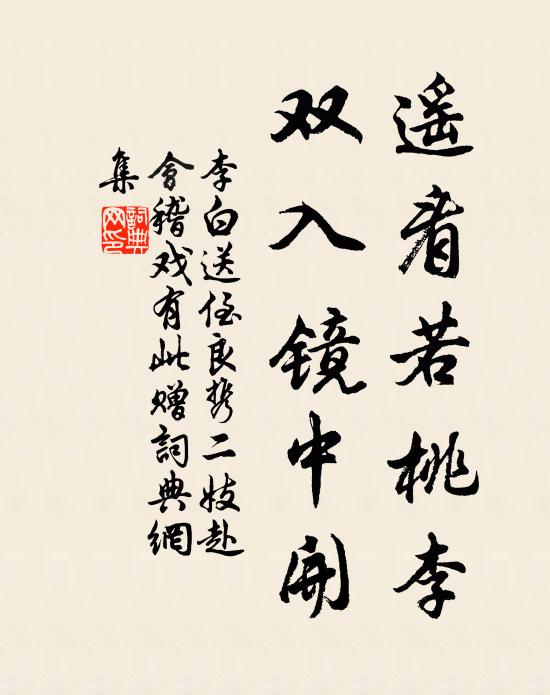 遥看若桃李
双入镜中開
李白送侄良携二妓赴
會稽戏有此赠詞典網
集
詞典網印